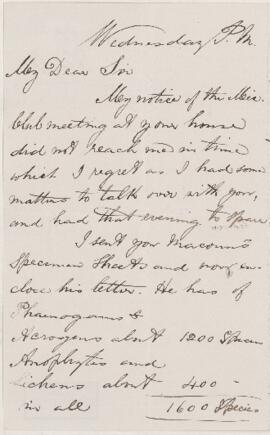 Wednesday P.M.
My Dear Sir
My notice of the Mic.
Club meeting at your house
did not reach me in time
which I regret as I had some
matters to talk over with you,
and had that evening to spare
I sent you Macoun's
Specimen Sheets and now en-
close his letter. He has of
Phaenogams &
Acrogens about 1200 Species
Anophytes and
Lichens about 400 -
in all 1600 Species